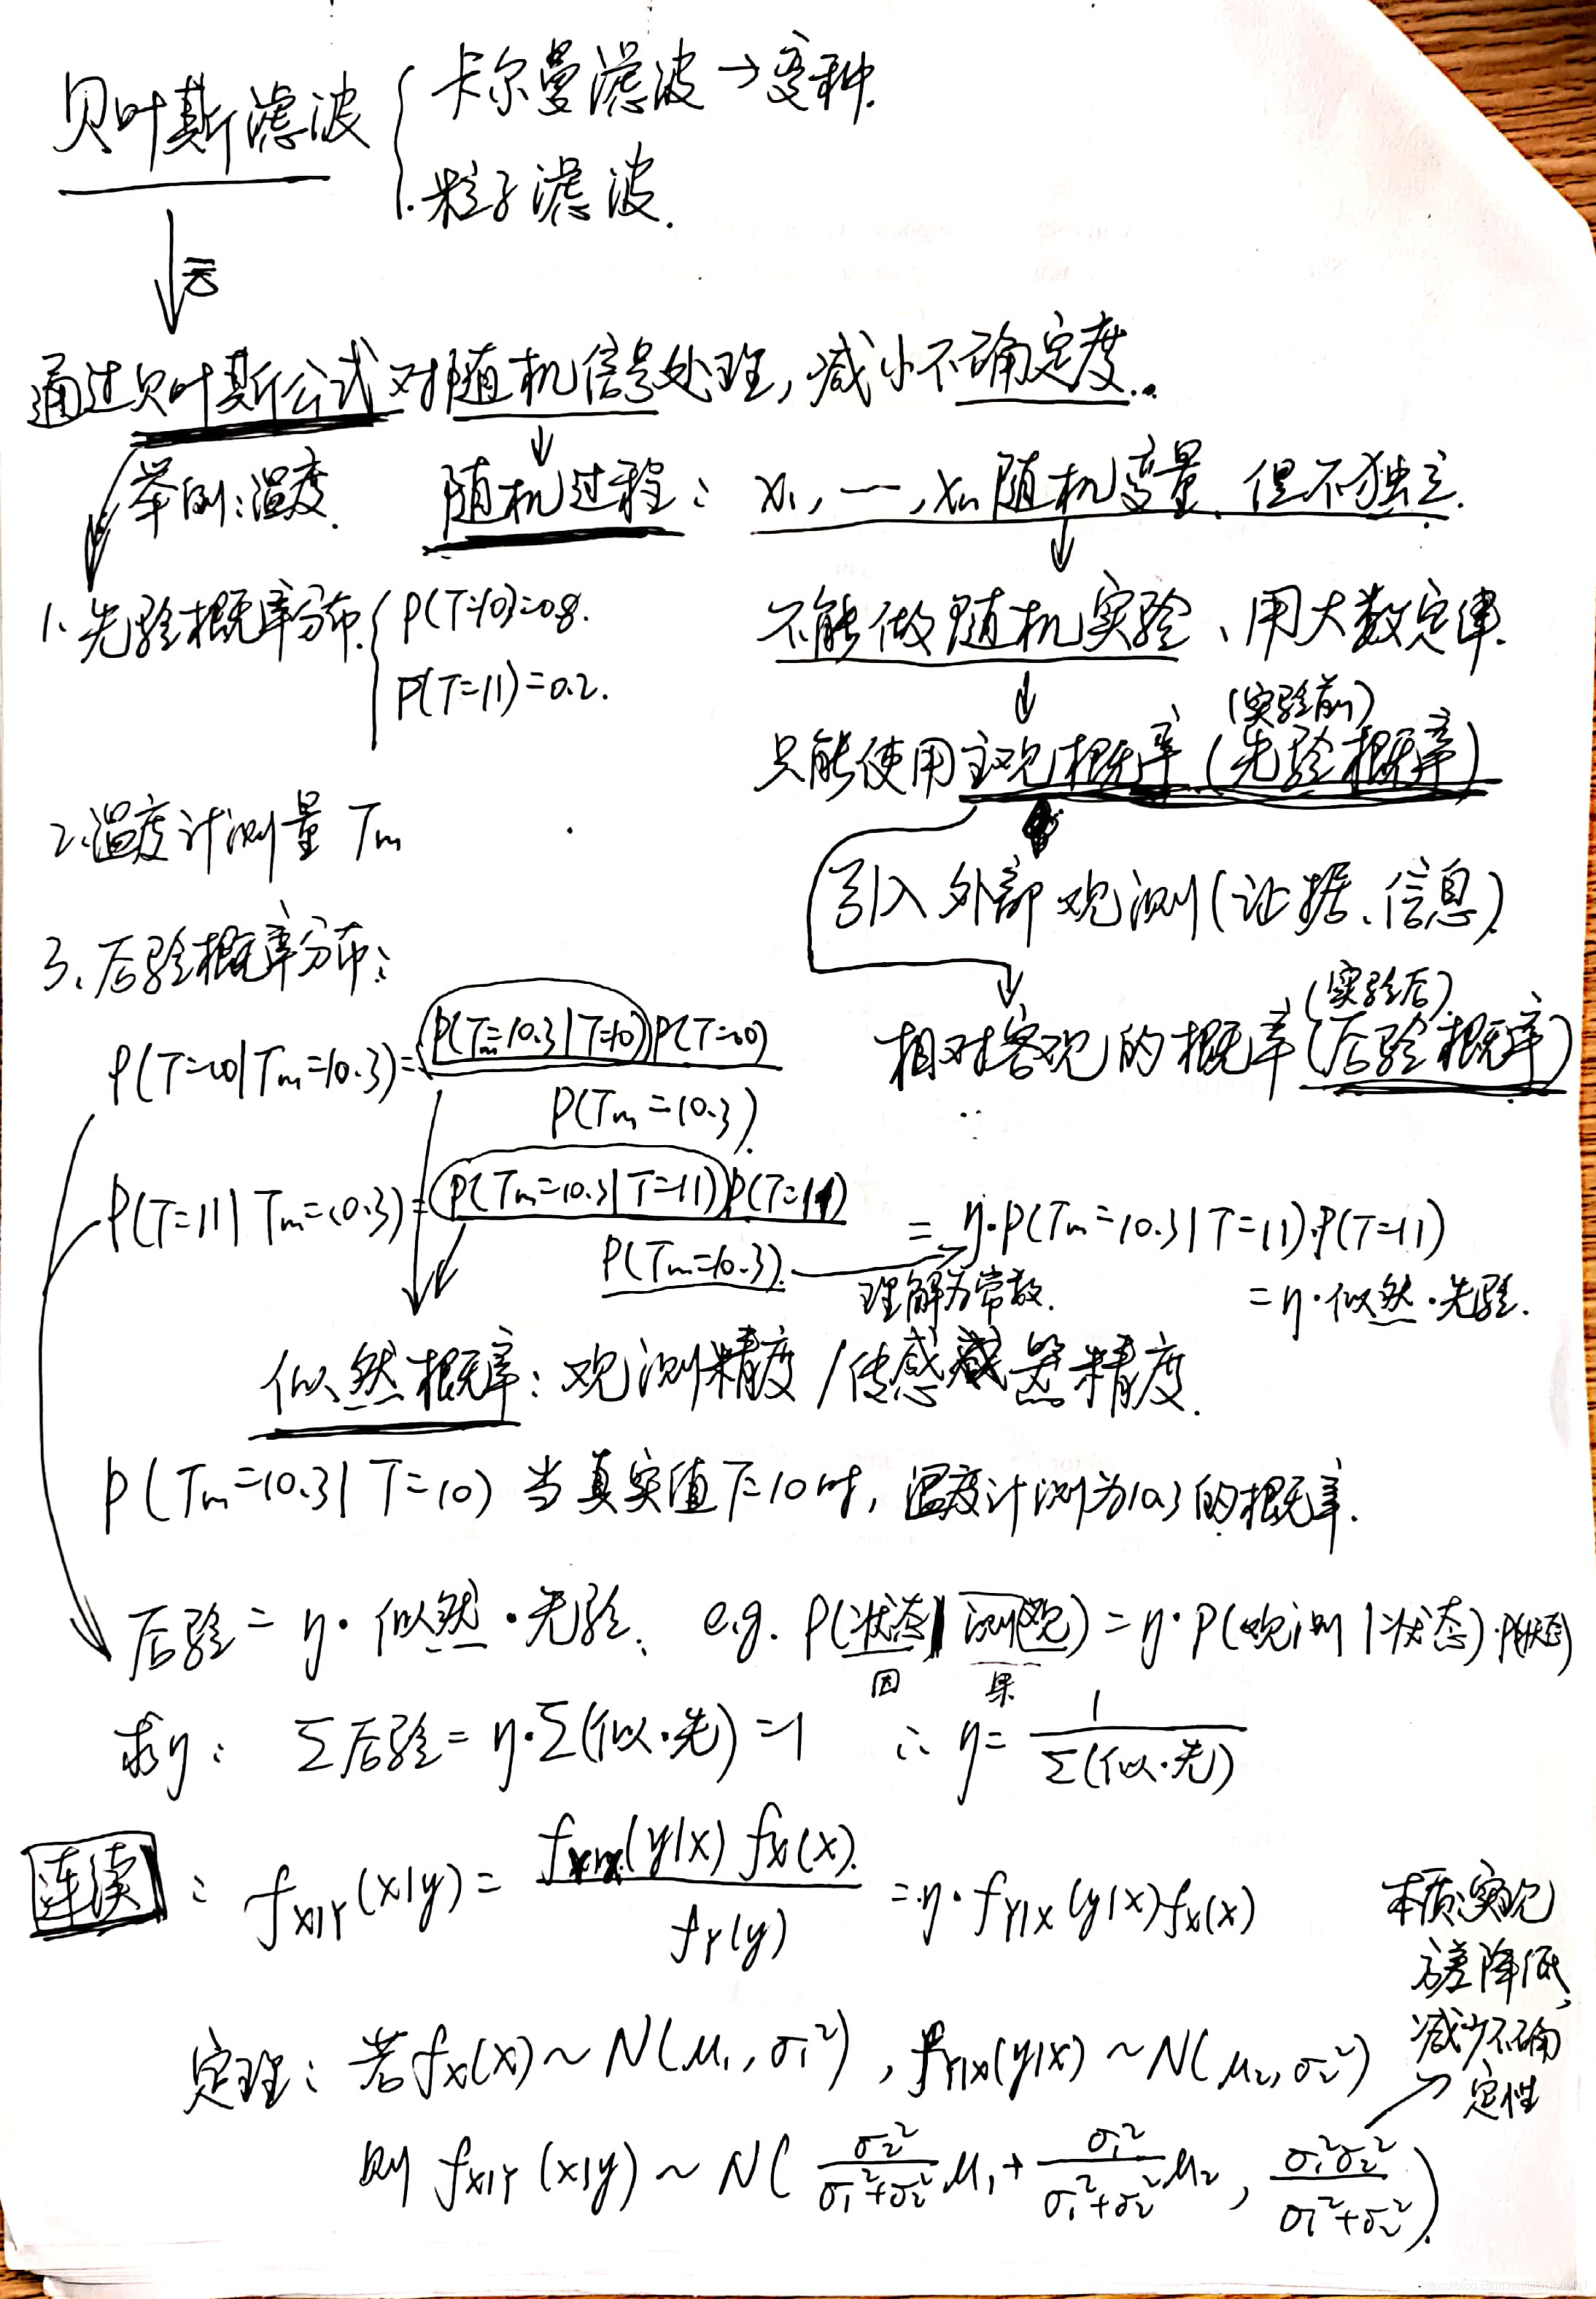 贝叶斯滤波 { 卡尔曼滤波→变种.
1.粒子滤波.
↓云
通过贝叶斯公式对随机信号处理,减小不确定度.
举例:温度. 随机过程: x₁, —, xₙ 随机变量、但不独立.
1. 先验概率分布. { P(T=10)=0.8.
P(T=11)=0.2.
不能做随机实验、用大数定律.
(实验前)
只能使用主观概率(先验概率)
2.温度计测量 Tm
引入外部观测(证据、信息).
3、后验概率分布:
(实验后)
相对客观的概率(后验概率)
P(T=10|Tm=10.3)= P(Tm=10.3|T=10)P(T=10) / P(Tm=10.3).
P(T=11|Tm=10.3)= P(Tm=10.3|T=11)P(T=11) / P(Tm=10.3). = η·P(Tm=10.3|T=11)·P(T=11)
理解为常数. =η·似然·先验.
似然概率:观测精度/传感器精度.
P(Tm=10.3|T=10) 当真实值T=10时,温度计测为10.3的概率.
后验=η·似然·先验、 e.g. P(状态|测观)=η·P(观测|状态)·P(状态)
因 果
求η: Σ后验=η·Σ(似·先)=1 ∴ η= 1 / Σ(似·先)
连续 : f_X|Y(x|y)= f(y|x) f_X(x). / f_Y(y) =η·f_Y|X(y|x)f_X(x)
本质实现
方差降低,
减少不确
定性
定理: 若f_X(x)~N(μ₁,σ₁²), f_Y|X(y|x)~N(μ₂,σ₂²)
则 f_X|Y(x|y)~N( σ₂²/(σ₁²+σ₂²) μ₁+ σ₁²/(σ₁²+σ₂²) μ₂, σ₁²σ₂²/(σ₁²+σ₂²) ).